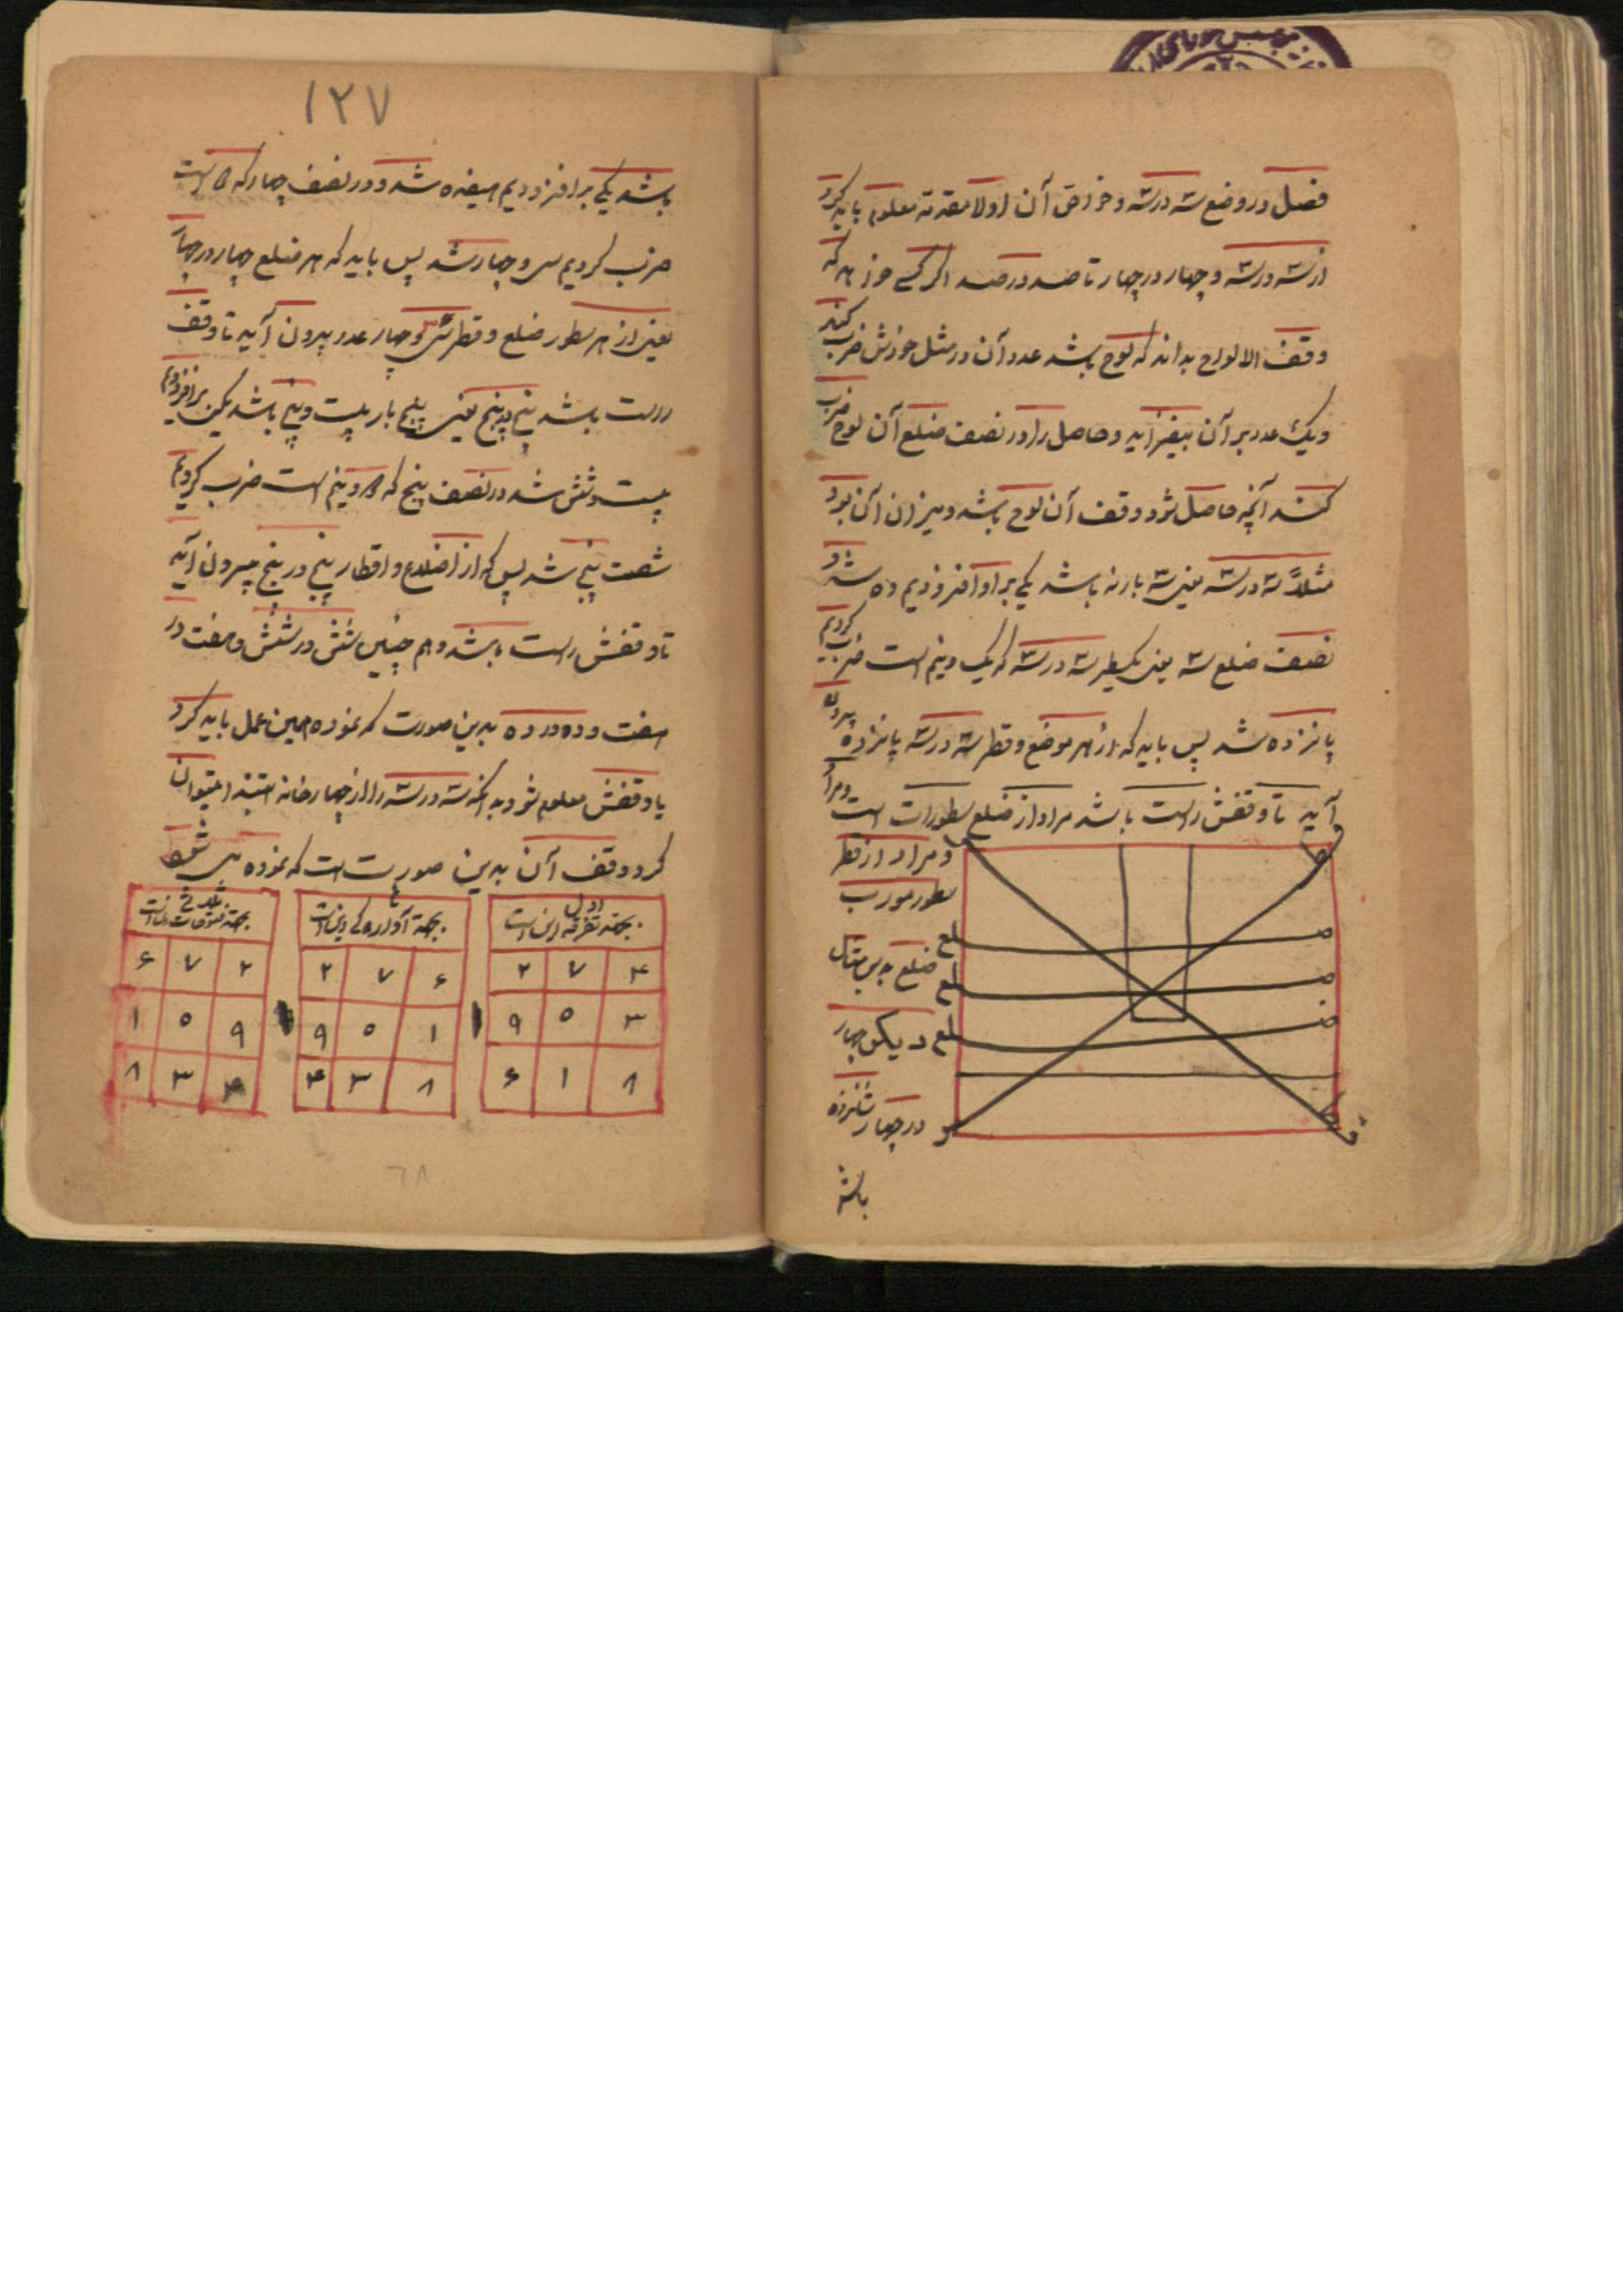 فصل در وضع سه در سه و خواص آن اولا مقدمه معلوم باید کرد
از سه در سه و چهار در چهار تا صد در صد اگر کسی خواهد که
وقف الالواح بداند که لوح باشد عدد آن در مثل خودش ضرب کند
و یک عدد بر آن بیفزاید و حاصل را در نصف ضلع آن لوح ضرب
کند آنچه حاصل شود وقف آن لوح باشد و میزان آن بود
مثلاً سه در سه یعنی سه بار نه باشد یکی بر او افزودیم ده شد و
نصف ضلع سه یعنی یکسطر سه در سه که یک و نیم است ضرب کردیم
پانزده شد پس باید که از هر موضع و قطر سه در سه پانزده بیرون
آید تا وقفش راست باشد مراد از ضلع سطور است
و مراد از قطر
سطور مورب
ضلع بدین مثال
دیگر چهار
در چهار شانزده
باشد
ضلع
ضلع
ضلع
۱۲۷
باشد یکی برافزودیم هیفده شد و در نصف چهار که ۲ است
ضرب کردیم سی و چهار شد پس باید که هر ضلع چهار در چهار
یعنی از هر سطور ضلع و قطر سی و چهار عدد بیرون آید تا وقف
درست باشد پنج در پنج یعنی پنج بار بیست و پنج باشد یکی برافزودیم
بیست و شش شد در نصف پنج که دو نیم است ضرب کردیم
شصت پنج شد پس که از اضلاع و اقطار پنج در پنج بیرون آید
تا وقفش راست باشد و هم چنین شش در شش و هفت در
هفت و ده در ده بدین صورت که نموده همین عمل باید کرد
تا وقفش معلوم شود بدانکه سه در سه را از چهار خانه ابتدا میتوان
کرد و وقف آن بدین صورت است که نموده می شود
اول
بجهة تفرقه این است
۲ ۷ ۴
۹ ۵ ۳
۶ ۱ ۸
بجهة آواره کی این است
۲ ۷ ۶
۹ ۵ ۱
۴ ۳ ۸
بجهة فتوحات این است
۶ ۷ ۲
۱ ۵ ۹
۸ ۳ ۴